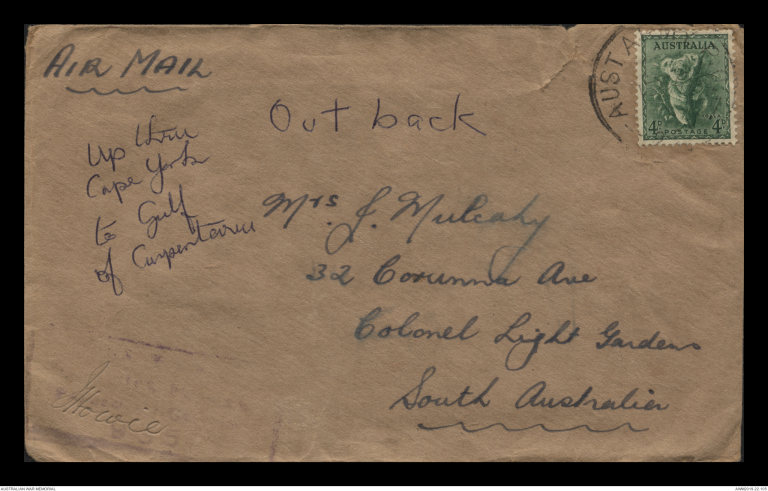 AIR MAIL
Out back
Up thru
Cape York
to Gulf
of Carpentaria
Mrs. J. Mulcahy
32 Corunna Ave
Colonel Light Gardens
South Australia
AUST A
AUSTRALIA
4D POSTAGE 4D
AUSTRALIAN WAR MEMORIAL